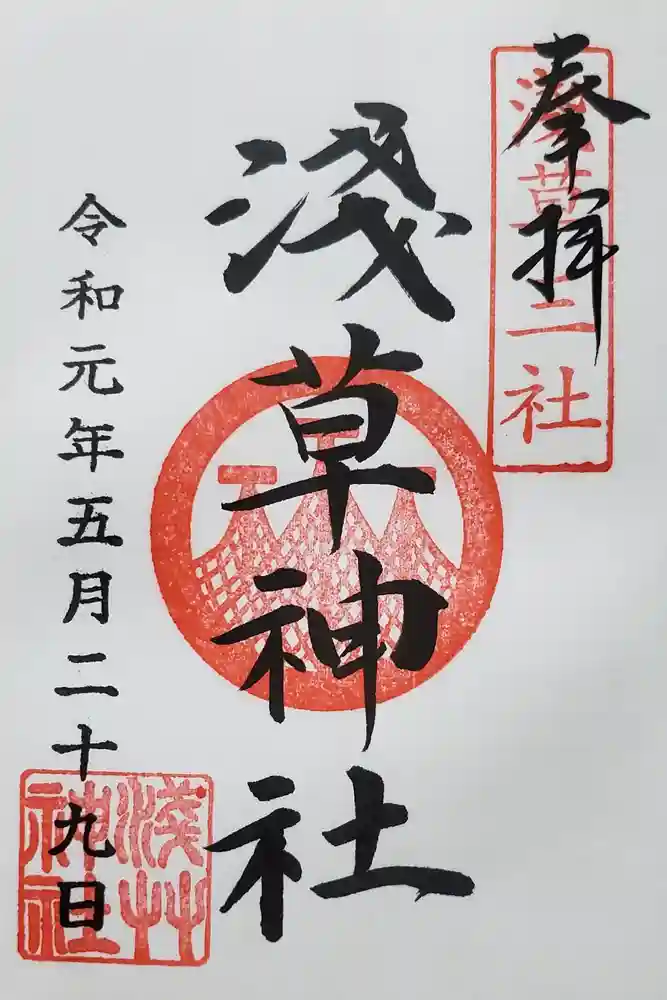 奉拝
淺草三社
淺草神社
令和元年五月二十九日
淺艸
神社